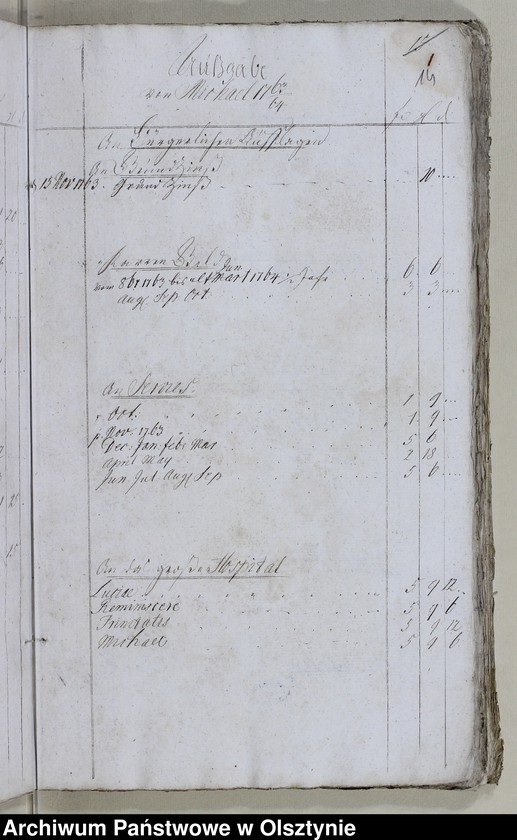 Außgabe
von Michael 1763/64
14
An Bürgerlichen Aufflagen
An Grundzinß
15 Nov 1763. Grundzinß 10
Herren Geld
vom 8br. 1763 bis ult Mart 1764 Jahr 6 6
Aug Sep Oct. 3 3
An Servies.
Oct. 1 9
Nov. 1763 1 9
Dec. Jan. Febr. Mar 5 6
April May 2 18
Jun Jul. Aug Sep 5 6
An das große Hospital
Luciae 5 9 12
Reminiscere 5 9 6
Trinitatis 5 9 12
Michael 5 9 6
Archiwum Państwowe w Olsztynie